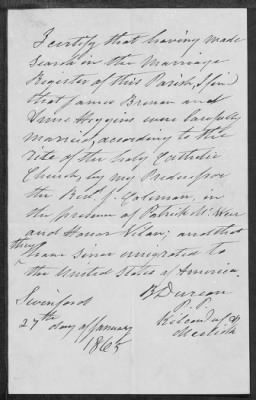 I certify that having made
search in the Marriage
Register of this Parish, I find
that James Brenan and
Anne Heggins were lawfully
married, according to the
rite of the holy Catholic
Church, by my Predecessor
the Revd. J. Coleman, in
the presence of Patrick Mc
and Honor Nolan; and that
they have since emigrated to
the United States of America.
B Durcan
P.P.
Swinford
27th day of January
1865